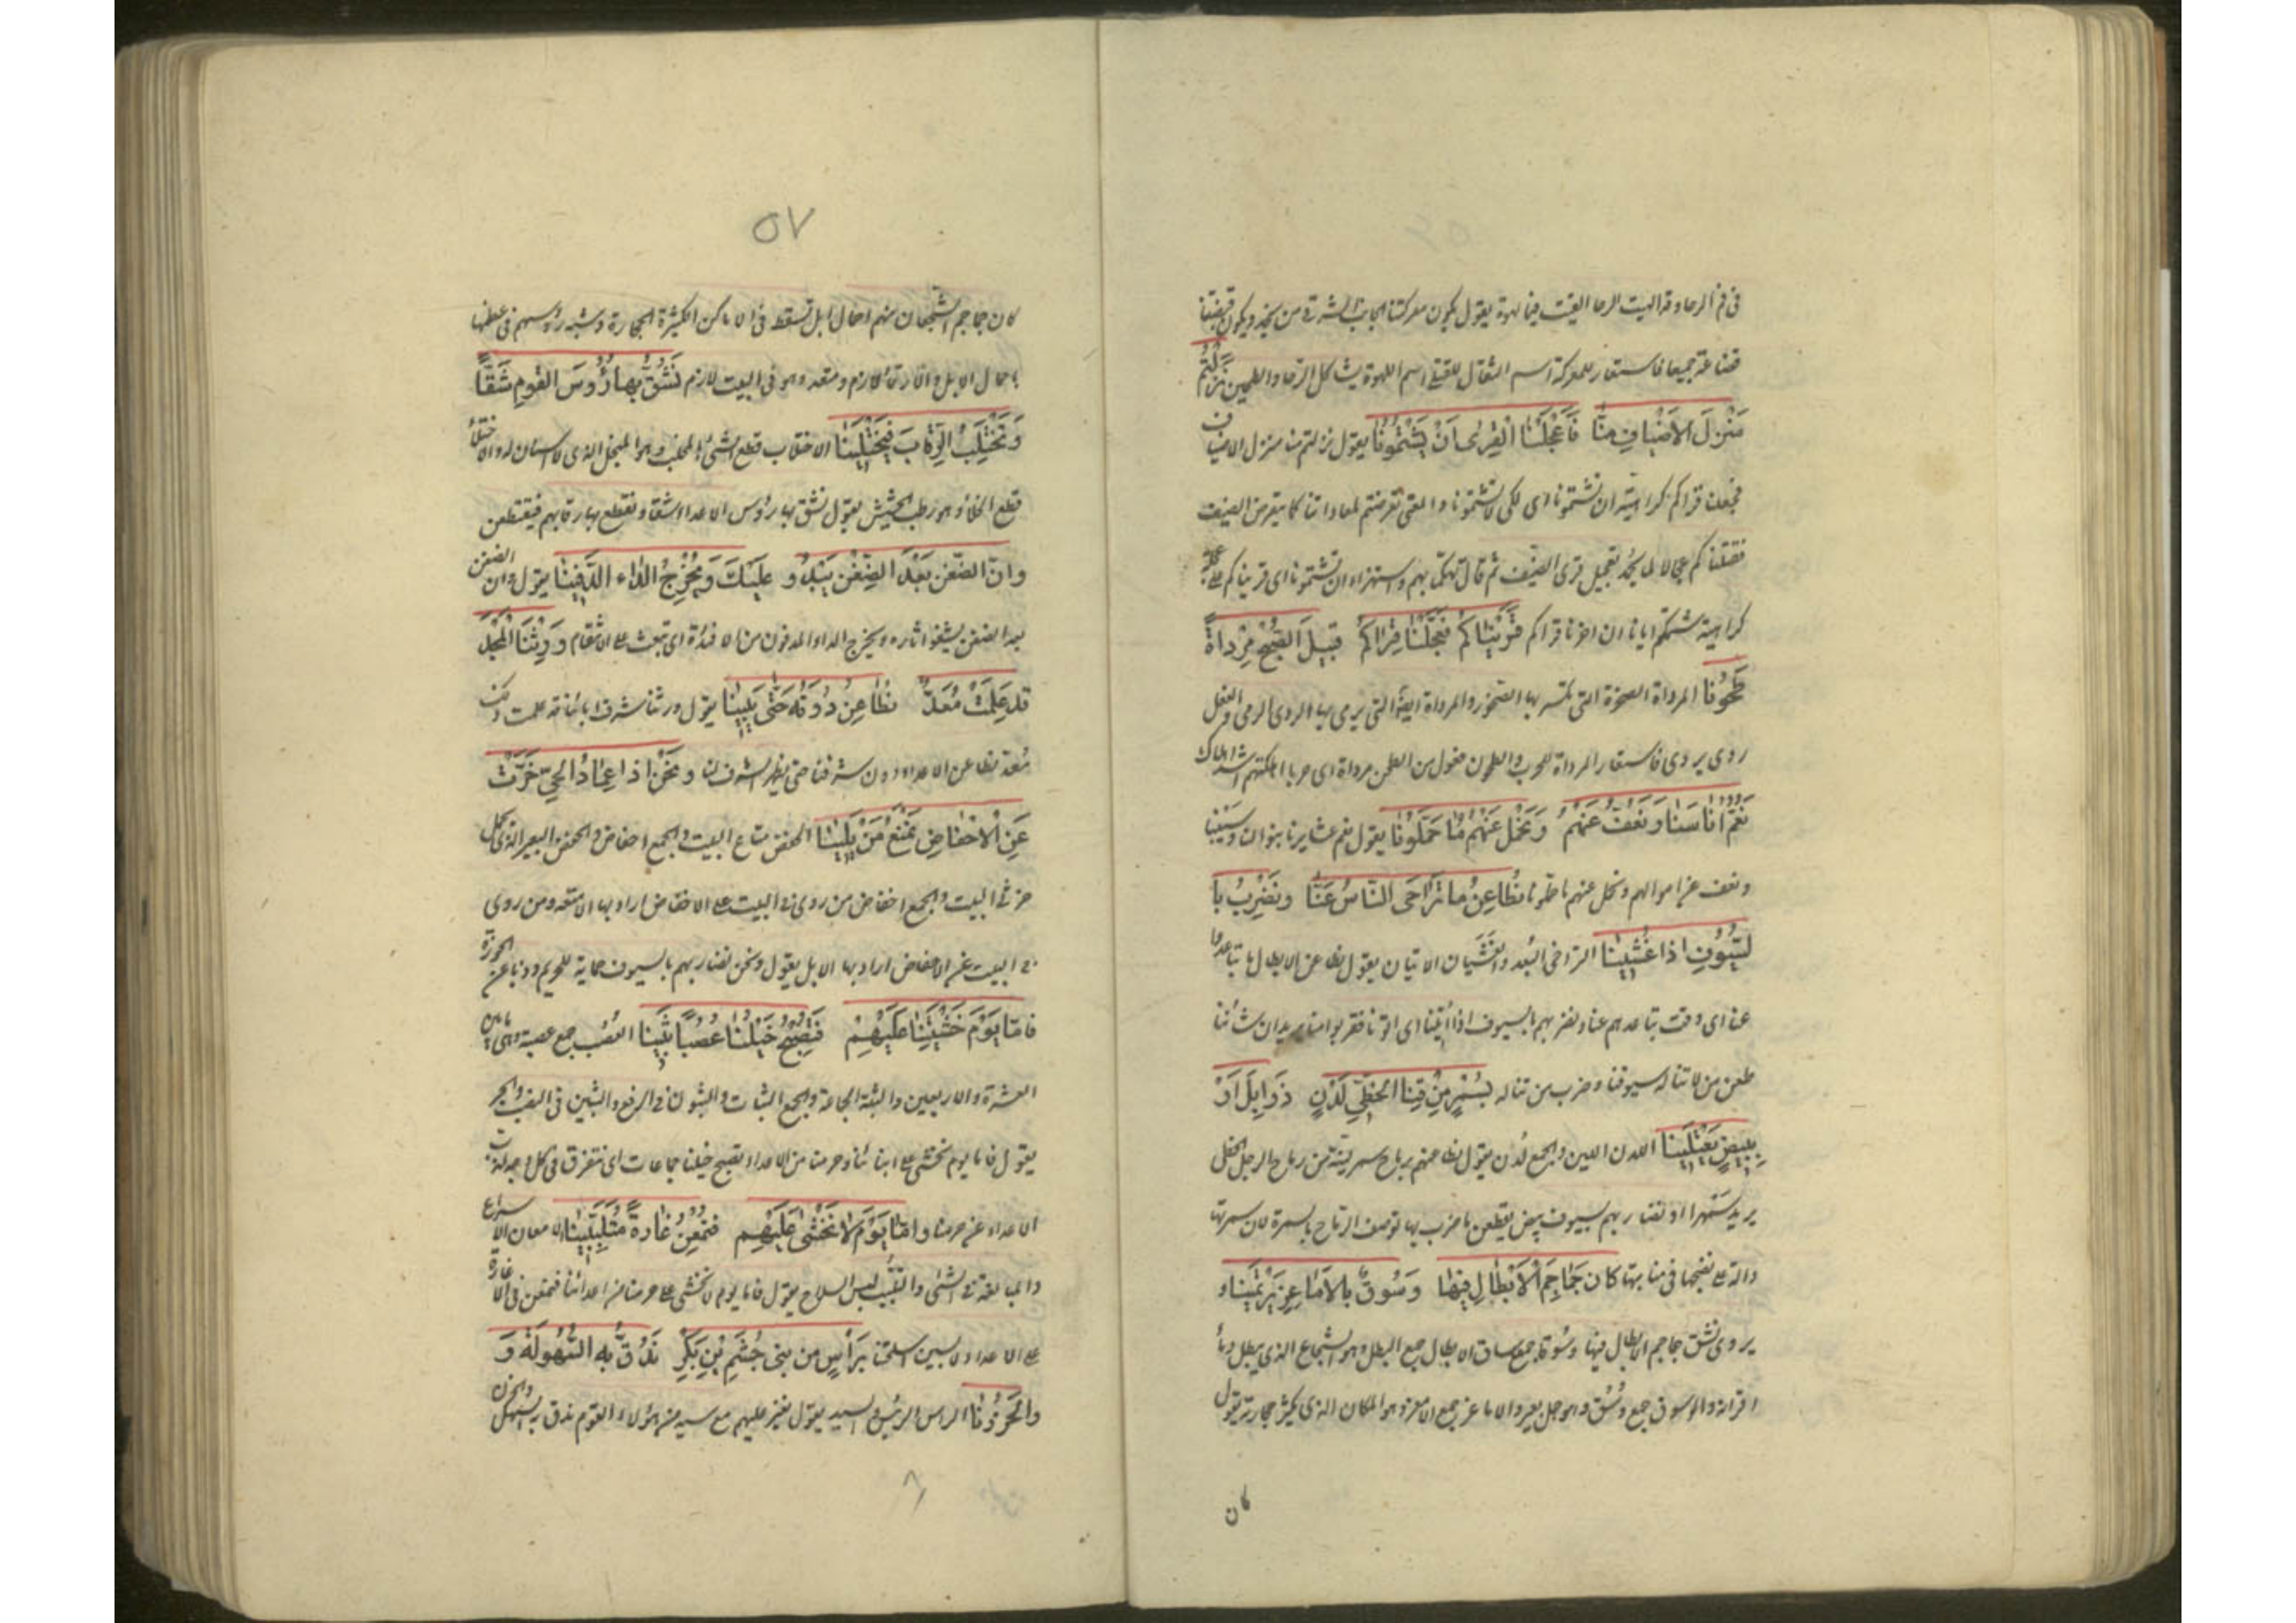 في فم الرحا وقد الهيت الرحا القيت فيها لهوة يقول تكون معركتنا الجانب الشرقي من نجد ويكون قبضتنا
قضاعة جميعا فاستعار للمعركة اسم الثفال وللقتلى اسم اللهوة ليشاكل الرحا والطحين نَزَلْتُم
مَنْزِلَ الاَضْيافِ مِنّا فَأَعْجَلْنَا القِرى اَنْ تَشْتِمُونَا يقول نزلتم منا منزل الاضياف
فعجلنا قراكم كراهية ان تشتمونا اى لكى لا تشتمونا والمعنى تعرضتم لمعاداتنا كما يتعرض الضيف
فقتلناكم عجالا كما يحمد تعجيل قرى الضيف ثم قال تهكما بهم واستهزاء ان تشتمونا اى قريناكم على عجلة
كراهية شتمكم ايانا ان اخرنا قراكم قَرَيْنَاكُم فَعَجَّلْنَا قِرَاكُمْ قُبَيْلَ الصُّبْحِ مِرْدَاةً
طَحُونَا المرداة الصخرة التى تكسر بها الصخور والمرداة ايضا التى يرمى بها الردى الرمى والفعل
ردى يردى فاستعار المرداة للحرب والطحون فعول من الطحن مرداة اى حربا اهلكتهم اشد اهلاك
نَعُمُّ اُنَاسَنَا وَنَعِفُّ عَنْهُمْ وَنَحْمِلُ عَنْهُم مَا حَمَّلُونَا يقول نعم عشايرنا بنوالنا وسيبنا
ونعف عن اموالهم ونحمل عنهم ما حملونا نُطَاعِنُ ما تَرَاخَى النَّاسُ عَنَّا وَنَضْرِبُ بِا
لسُّيُوفِ اذا غُشِينَا التراخى البعد والغشيان الاتيان يقول نطاعن الابطال ما تباعدوا
عنا اى وقت تباعدهم عنا ونضربهم بالسيوف اذا اُتينا اى اتونا فقربوا منا يريد ان شاننا
طعن من لا تناله سيوفنا وضرب من تناله بِسُمْرٍ مِنْ قَنا الخَطِّيِّ لُدْنٍ ذَوَابِلَ اَوْ
بِبِيضٍ يَعْتَلِينَا اللدن اللين والجمع لُدن يقول نطاعنهم برماح سمر لينة من رماح الرجل الخطى
يريد سمهرا او نضاربهم بسيوف بيض يقطعن ما ضرب بها توصف الرماح بالسمرة لان سمرتها
دالة على نضجها في منابتها كان جَمَاجِمَ الْاَبْطَالِ فِيْهَا وُسُوقٌ بِالاَمَاعِزِ يَرْتَمِينَا و
يروى نشق جماجم الابطال فيها وسُوقا جمع ساق الابطال جمع البطل وهو الشجاع الذى يبطل دما
اقرانه والوسوق جمع وَسْق وهو حمل بعير والاماعز جمع الامعز وهو المكان الذى يكثر حجارته يقول
كان
٥٧
كان جماجم الشجعان منهم احمال ابل تسقط فى الاماكن الكثيرة الحجارة وشبه رؤسهم فى عظمها
باحمال الابل والارتماء لازم ومتعد وهو فى البيت لازم نَشُقُّ بهـا رُؤُوسَ القَومِ شَقًّا
وَنَخْتَلِبُ الرِّقَابَ فَيَخْتَلِينَا الاختلاب قطع الشئ بالمخلب وهو المنجل الذى لا اسنان له والاختلاء
قطع الخلا وهو رطب الحشيش يقول نشق بها رؤس الاعداء شقا ونقطع بها رقابهم فيقتطعن
وَانّ الضّغن بَعْدَ الضِّغْنِ يَبْدُو عَلَيكَ وَيُخْرِجُ الدَّاء الدَّفِينَا يقول وان الضغن
بعد الضغن يفشو اثاره ويخرج الداء المدفون من الافئدة اى تبعث على الانتقام وَرِثْنَا الْمَجْدَ
قَد عَلِمَتْ مَعَدٌّ نُطَاعِنُ دُوْنَهُ حَتَّى يَبِينَا يقول ورثنا شرف ابائنا قد علمت ذلك
مَعَدّ نطاعن الاعداء دون شرفنا حتى يظهر الشرف لنا وَنَحْنُ اذا عِمَادُ الحَيِّ خَرَّتْ
عَنِ الْاَحْفَاضِ نَمْنَعُ مَنْ يَلِينَا الحفض متاع البيت والجمع احفاض والحفض البعير الذى يحمل
خرثى البيت والجمع احفاض من روى فى البيت على الاحفاض اراد بها الامتعة ومن روى
فى البيت عن الاحفاض اراد بها الابل يقول ونحن نضاربهم بالسيوف حماية للحريم وذبا عن الحوزة
فَامّا يَوْمَ خَشْيَتِنَا عَلَيْهِمْ فَتُصْبِحُ خَيْلُنَا عُصُبًا ثُبِينَا العصب جمع عصبة وهى ما بين
العشرة والاربعين والثبة الجماعة والجمع الثبات والثبون فى الرفع والثبين فى النصب والجر
يقول فاما يوم نخشى على ابنائنا وحرمنا من الاعداء تصبح خيلنا جماعات اى تتفرق فى كل وجه لذب
الاعداء عن حرمنا وَامّا يَوْمَ لاَ نَخْشَى عَلَيْهِم فَنُمْعِنُ غَارَةً مُتَلَبِّبِينَا الامعان الاسراع
والمبالغة فى الشئ والتلبب لبس السلاح يقول فاما يوم لا نخشى على حرمنا من اعدائنا فنمعن فى الاغارة
على الاعداء لابسين اسلحتنا بِرَأْسٍ مِن بَنِى جُشَمِ بْنِ بَكْرٍ نَدُقُّ بِهِ السُّهُولَةَ وَ
والحُزُوْنَا الراس الرئيس والسيد يقول نغير عليهم مع سيد من هؤلاء القوم ندق به السهل والحزن